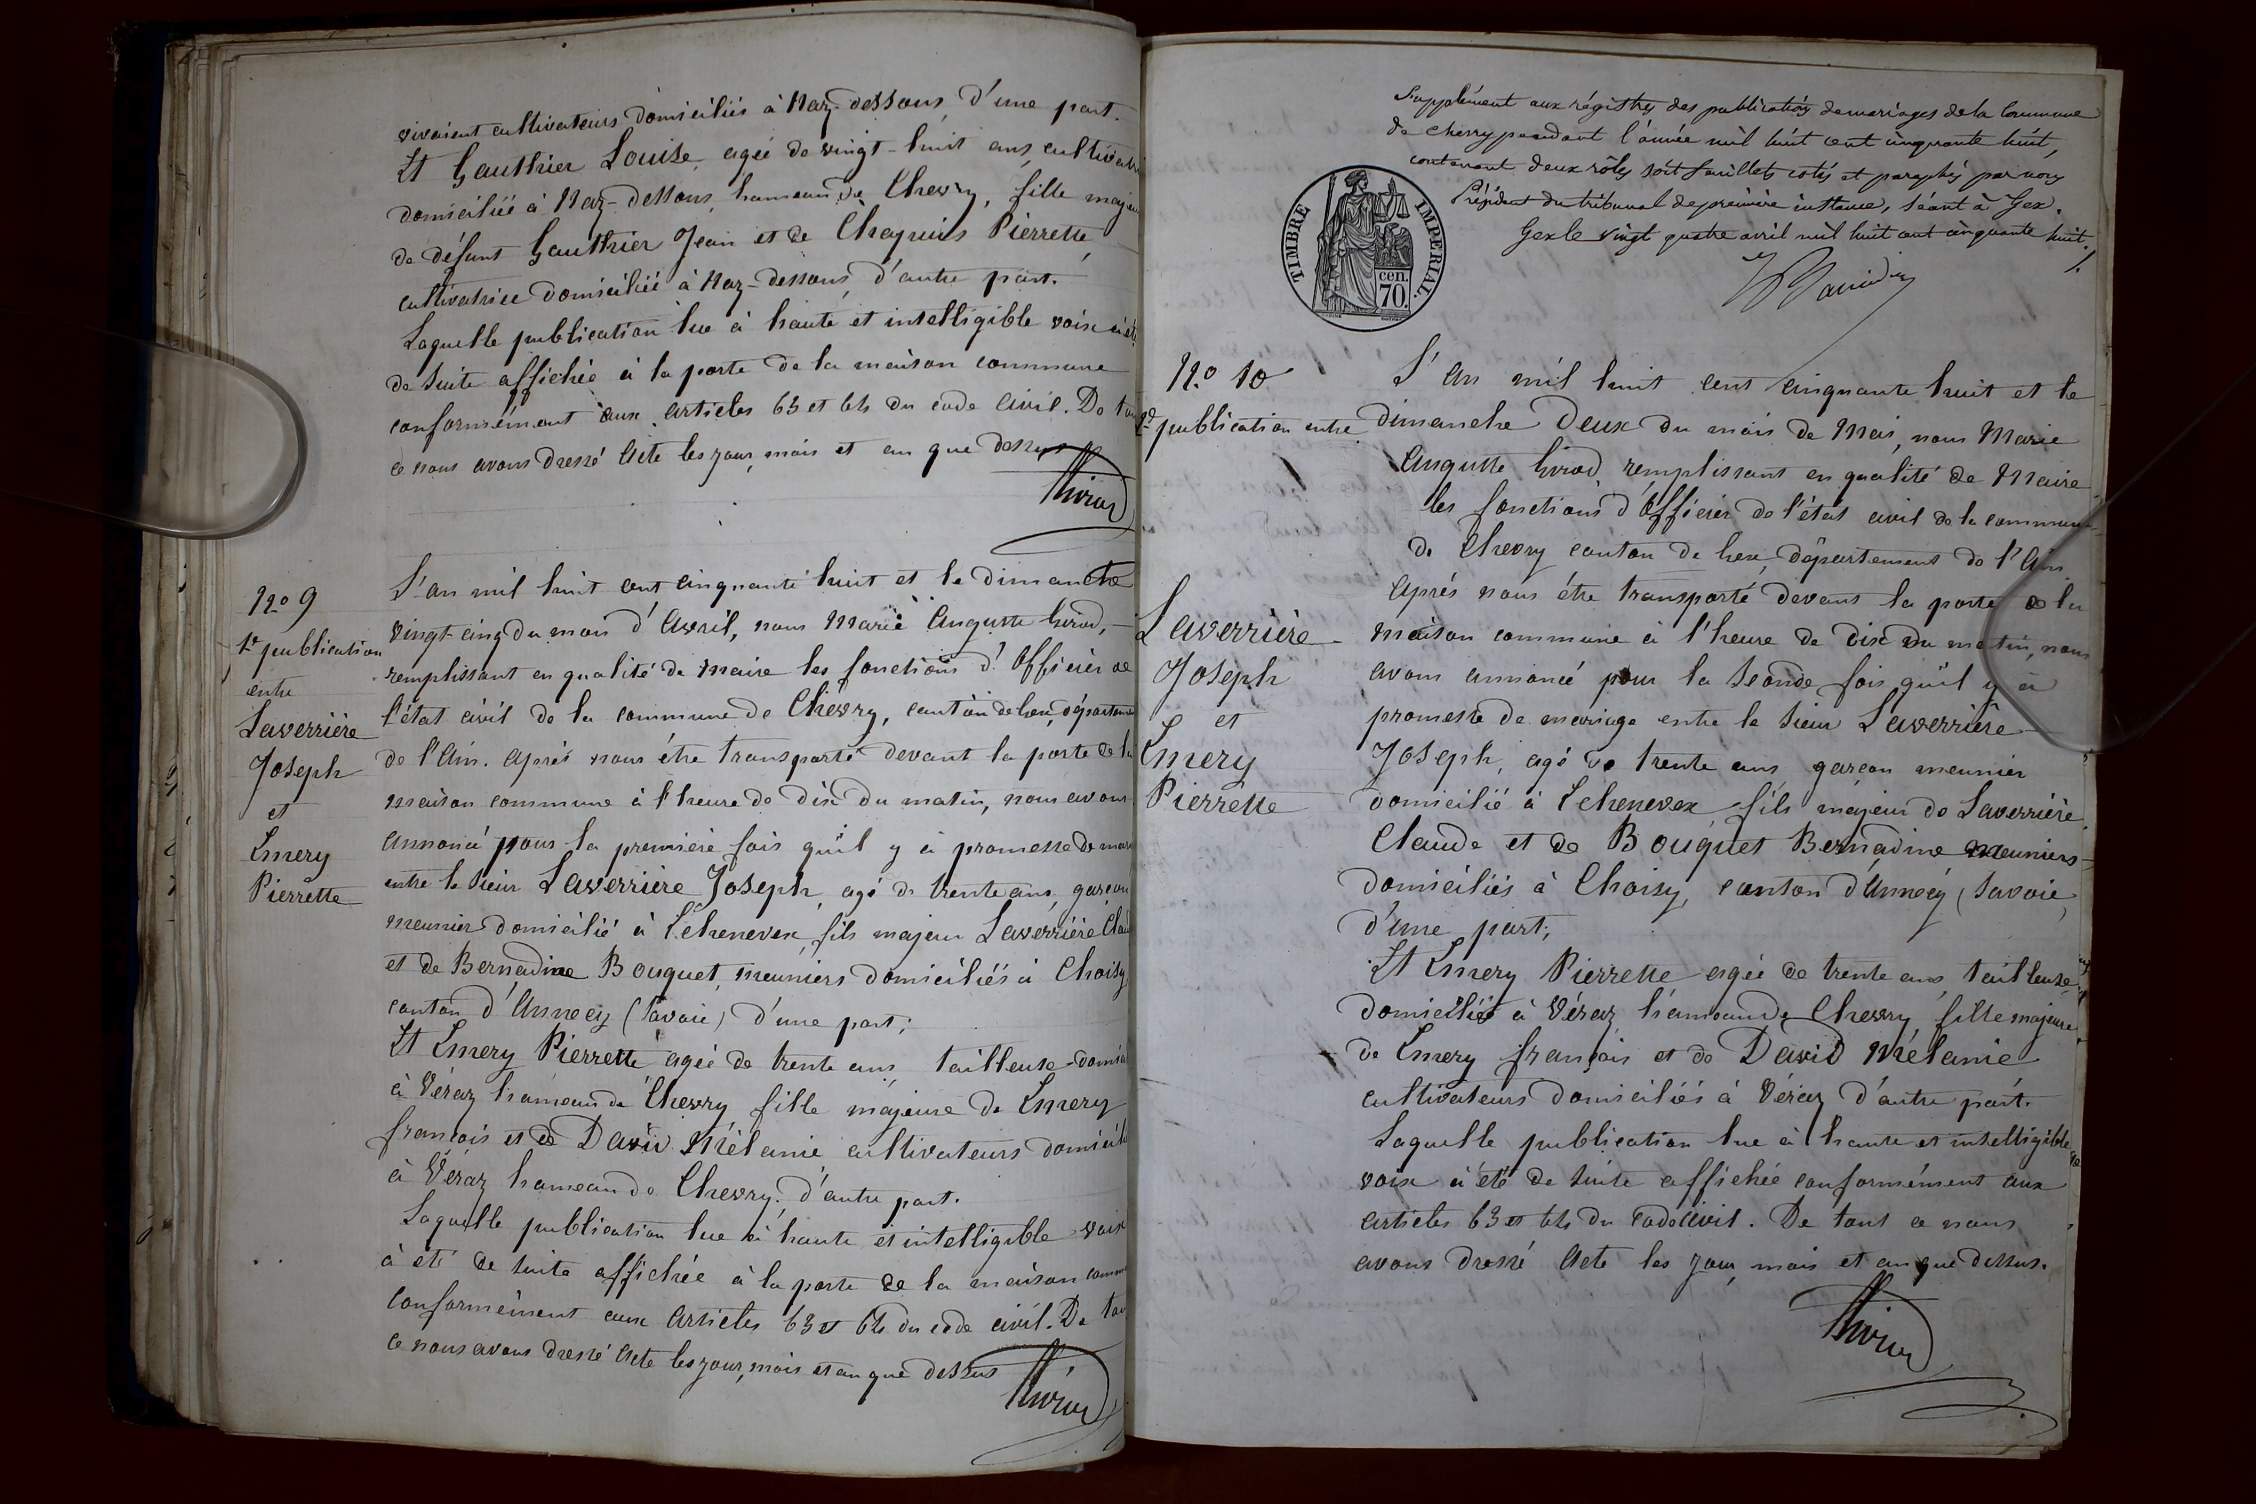 vivaient cultivateurs domiciliés à Naz-dessous, d'une part.
Et Gauthier Louise, agée de vingt-huit ans, cultivatri
domiciliée à Naz-dessous, hameau de Chevry, fille majeu
de défunt Gauthier Jean et de Chapuis Pierrette,
cultivatrice domiciliée à Naz-dessous, d'autre part.
Laquelle publication lue à haute et intelligible voix a été
de suite affichée à la porte de la maison commune
conformément aux articles 63 et 64 du code civil. De tou
ce nous avons dressé Acte les jour, mois et an que dessus
Girod
N.o 9
1re publication
entre
Laverrière
Joseph
et
Emery
Pierrette
L'an mil huit cent cinquante huit et le dimanche
vingt-cinq du mois d'Avril, nous Marie Auguste Girod,
remplissant en qualité de Maire les fonctions d'Officier de
l'état civil de la commune de Chevry, canton de Gex, départeme
de l'Ain. Après nous être transporté devant la porte de la
maison commune à l'heure de dix du matin, nous avons
annoncé pour la première fois qu'il y a promesse de mari
entre le sieur Laverrière Joseph, agé de trente ans, garçon
meunier domicilié à Echenevex, fils majeur Laverrière Clau
et de Bernadine Bouquet, meuniers domiciliés à Choisy,
canton d'Annecy (Savoie) d'une part;
Et Emery Pierrette agée de trente ans, tailleuse domici
à Véraz hameau de Chevry fille majeure de Emery
françois et de David Mélanie cultivateurs domicili
à Véraz hameau de Chevry, d'autre part.
Laquelle publication lue à haute et intelligible voix
à été de suite affichée à la porte de la maison commu
conformément aux Articles 63 et 64 du code civil. De tou
ce nous avons dressé Acte les jour, mois et an que dessus
Girod
Supplément aux régistres des publications de mariages de la Commune
de Chevry pendant l'année mil huit cent cinquante huit,
contenant deux rôles soit feuillets cotés et paraphés par nous
Président du tribunal de première instance, séant à Gex.
Gex le vingt quatre avril mil huit cent cinquante huit.
TIMBRE IMPERIAL.
cen.
70.
N.o 10
2e publication entre
Laverrière
Joseph
et
Emery
Pierrette
L'An mil huit cent cinquante huit et le
dimanche deux du mois de Mai, nous Marie
Auguste Girod, remplissant en qualité de Maire
les fonctions d'Officier de l'état civil de la commune
de Chevry canton de Gex, département de l'Ain
Après nous être transporté devant la porte de la
maison commune à l'heure de dix du matin, nous
avons annoncé pour la seconde fois qu'il y a
promesse de mariage entre le sieur Laverrière
Joseph, agé de trente ans, garçon meunier
domicilié à Echenevex, fils majeur de Laverrière
Claude et de Bouquet Bernadine meuniers
domiciliés à Choisy, canton d'Annecy (Savoie)
d'une part;
Et Emery Pierrette agée de trente ans, tailleuse,
domiciliée à Véraz hameau de Chevry, fille majeure
de Emery françois et de David Mélanie
cultivateurs domiciliés à Véraz d'autre part.
Laquelle publication lue à haute et intelligible
voix a été de suite affichée conformément aux
articles 63 et 64 du Code civil. De tout ce nous
avons dressé Acte les jour, mois et an que dessus.
Girod